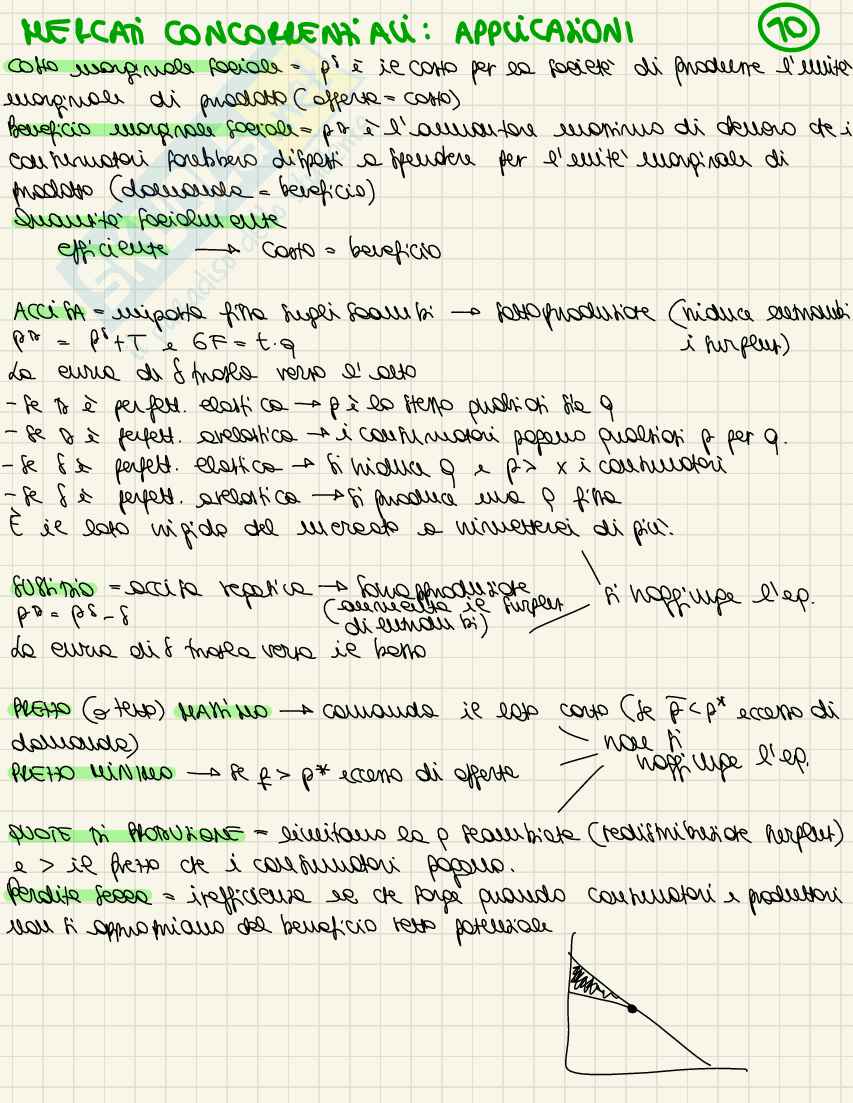 MERCATI CONCORRENZIALI: APPLICAZIONI 10
Costo marginale sociale = pˢ è il costo per la società di produrre l'unità
marginale di prodotto (offerta = costo)
Beneficio marginale sociale = pᴰ è l'ammontare massimo di denaro che i
consumatori sarebbero disposti a spendere per l'unità marginale di
prodotto (domanda = beneficio)
Quantità socialmente
efficiente → costo = beneficio
ACCISA = imposta fissa sugli scambi → sottoproduzione (riduce entrambi
pᴰ = pˢ + T e GF = t·q i surplus)
La curva di S trasla verso l'alto
- Se D è perfett. elastica → p è lo stesso qualsiasi sia q
- Se D è perfett. anelastica → i consumatori pagano qualsiasi p per q.
- Se S è perfett. elastica → si riduce q e p > x i consumatori
- Se S è perfett. anelastica → si produce una q fissa
È il lato rigido del mercato a rimetterci di più.
SUSSIDIO = accisa negativa → sovrapproduzione
si raggiunge l'eq.
pᴰ = pˢ - s (aumenta il surplus
di entrambi)
La curva di S trasla verso il basso
PREZZO (o tasso) MASSIMO → comanda il lato corto (se p̅ < p* eccesso di
domanda) non si
raggiunge l'eq.
PREZZO MINIMO → se p > p* eccesso di offerta
QUOTE DI PRODUZIONE = limitano la q scambiata (redistribuzione surplus)
e > il prezzo che i consumatori pagano.
Perdita secca = inefficienza che sorge quando consumatori e produttori
non si appropriano del beneficio netto potenziale